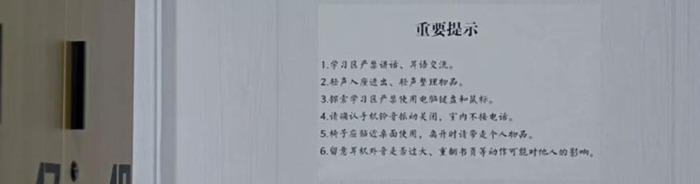 重要提示
1.学习区严禁讲话、耳语交流。
2.轻声入座进出、轻声整理物品。
3.探索学习区严禁使用电脑键盘和鼠标。
4.请确认手机铃音振动关闭，室内不接电话。
5.椅子应贴近桌面使用，离开时请带走个人物品。
6.留意耳机外音是否过大、重翻书页等动作可能对他人的影响。